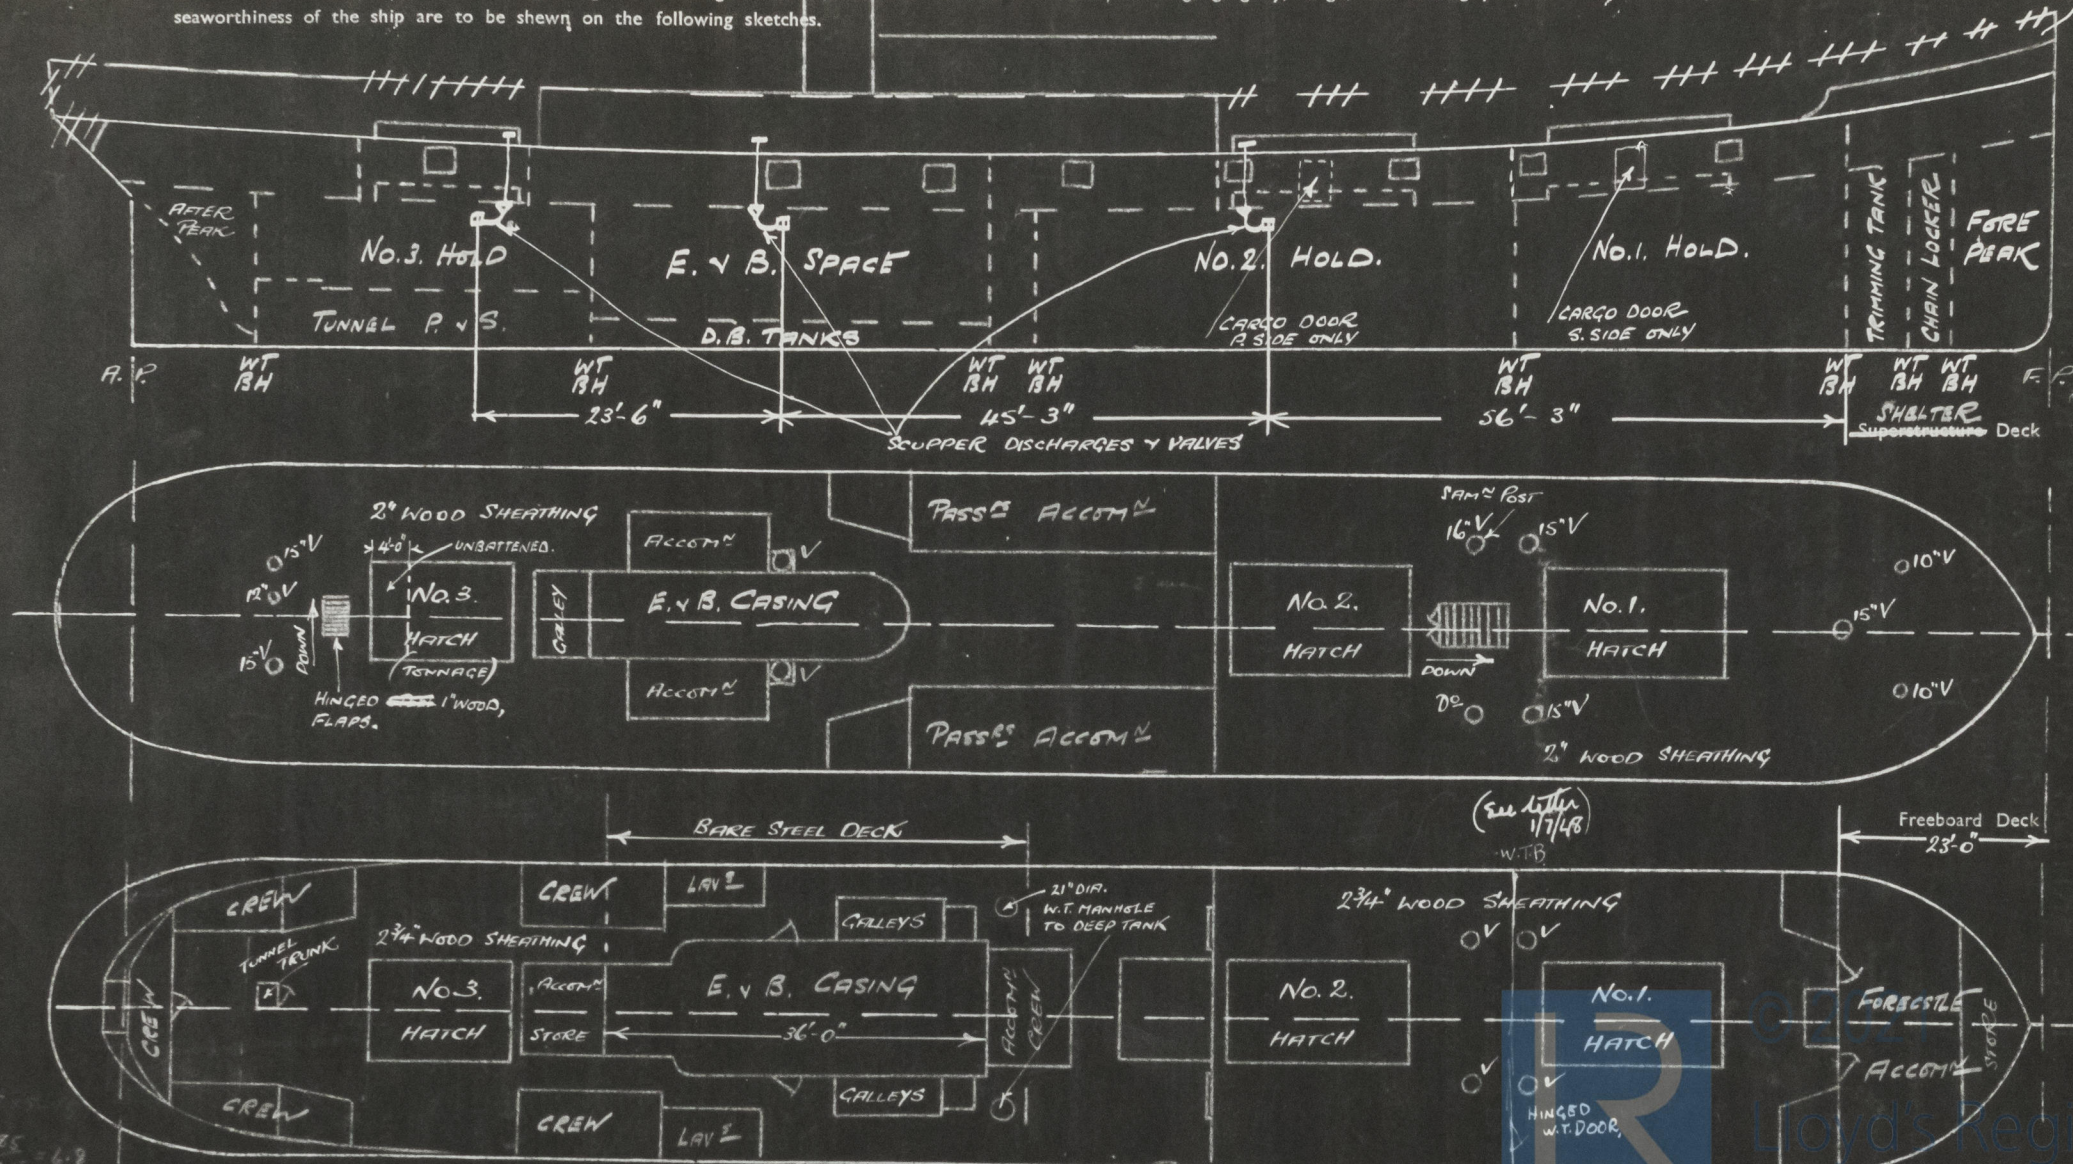 seaworthiness of the ship are to be shewn on the following sketches.
AFTER
PEAK
No. 3. HOLD
E. & B. SPACE
No. 2. HOLD.
No. 1. HOLD.
TRIMMING TANK
CHAIN LOCKER
FORE
PEAK
TUNNEL P. & S.
D.B. TANKS
CARGO DOOR
P. SIDE ONLY
CARGO DOOR
S. SIDE ONLY
A. P.
WT
BH
WT
BH
WT
BH
WT
BH
WT
BH
WT
BH
WT
BH
WT
BH
F. P.
23'-6"
45'-3"
56'-3"
SCUPPER DISCHARGES & VALVES
SHELTER
Superstructure Deck
2" WOOD SHEATHING
4'-0"
UNBATTENED.
15"V
12"V
15"V
DOWN
No. 3.
HATCH
(TONNAGE)
HINGED 1" WOOD,
FLAPS.
GALLEY
ACCOMN
V
E. & B. CASING
ACCOMN
V
PASSRS ACCOMN
PASSRS ACCOMN
No. 2.
HATCH
SAMN POST
16"V
15"V
DOWN
DO
15"V
No. 1.
HATCH
10"V
15"V
10"V
2" WOOD SHEATHING
(See letter
1/7/48)
W.T.B.
Freeboard Deck
23'-0"
BARE STEEL DECK
CREW
CREW
LAVS
GALLEYS
21" DIA.
W.T. MANHOLE
TO DEEP TANK
2¾" WOOD SHEATHING
2¾" WOOD SHEATHING
TUNNEL
TRUNK
CREW
No 3.
HATCH
ACCOMN
STORE
E. & B. CASING
36'-0"
ACCOMN
CREW
No. 2.
HATCH
V
V
No. 1.
HATCH
FORECASTLE
ACCOMN
STORE
V
V
CREW
CREW
LAVS
GALLEYS
HINGED
W.T. DOOR,
© 2021
LR
Lloyd's Regi